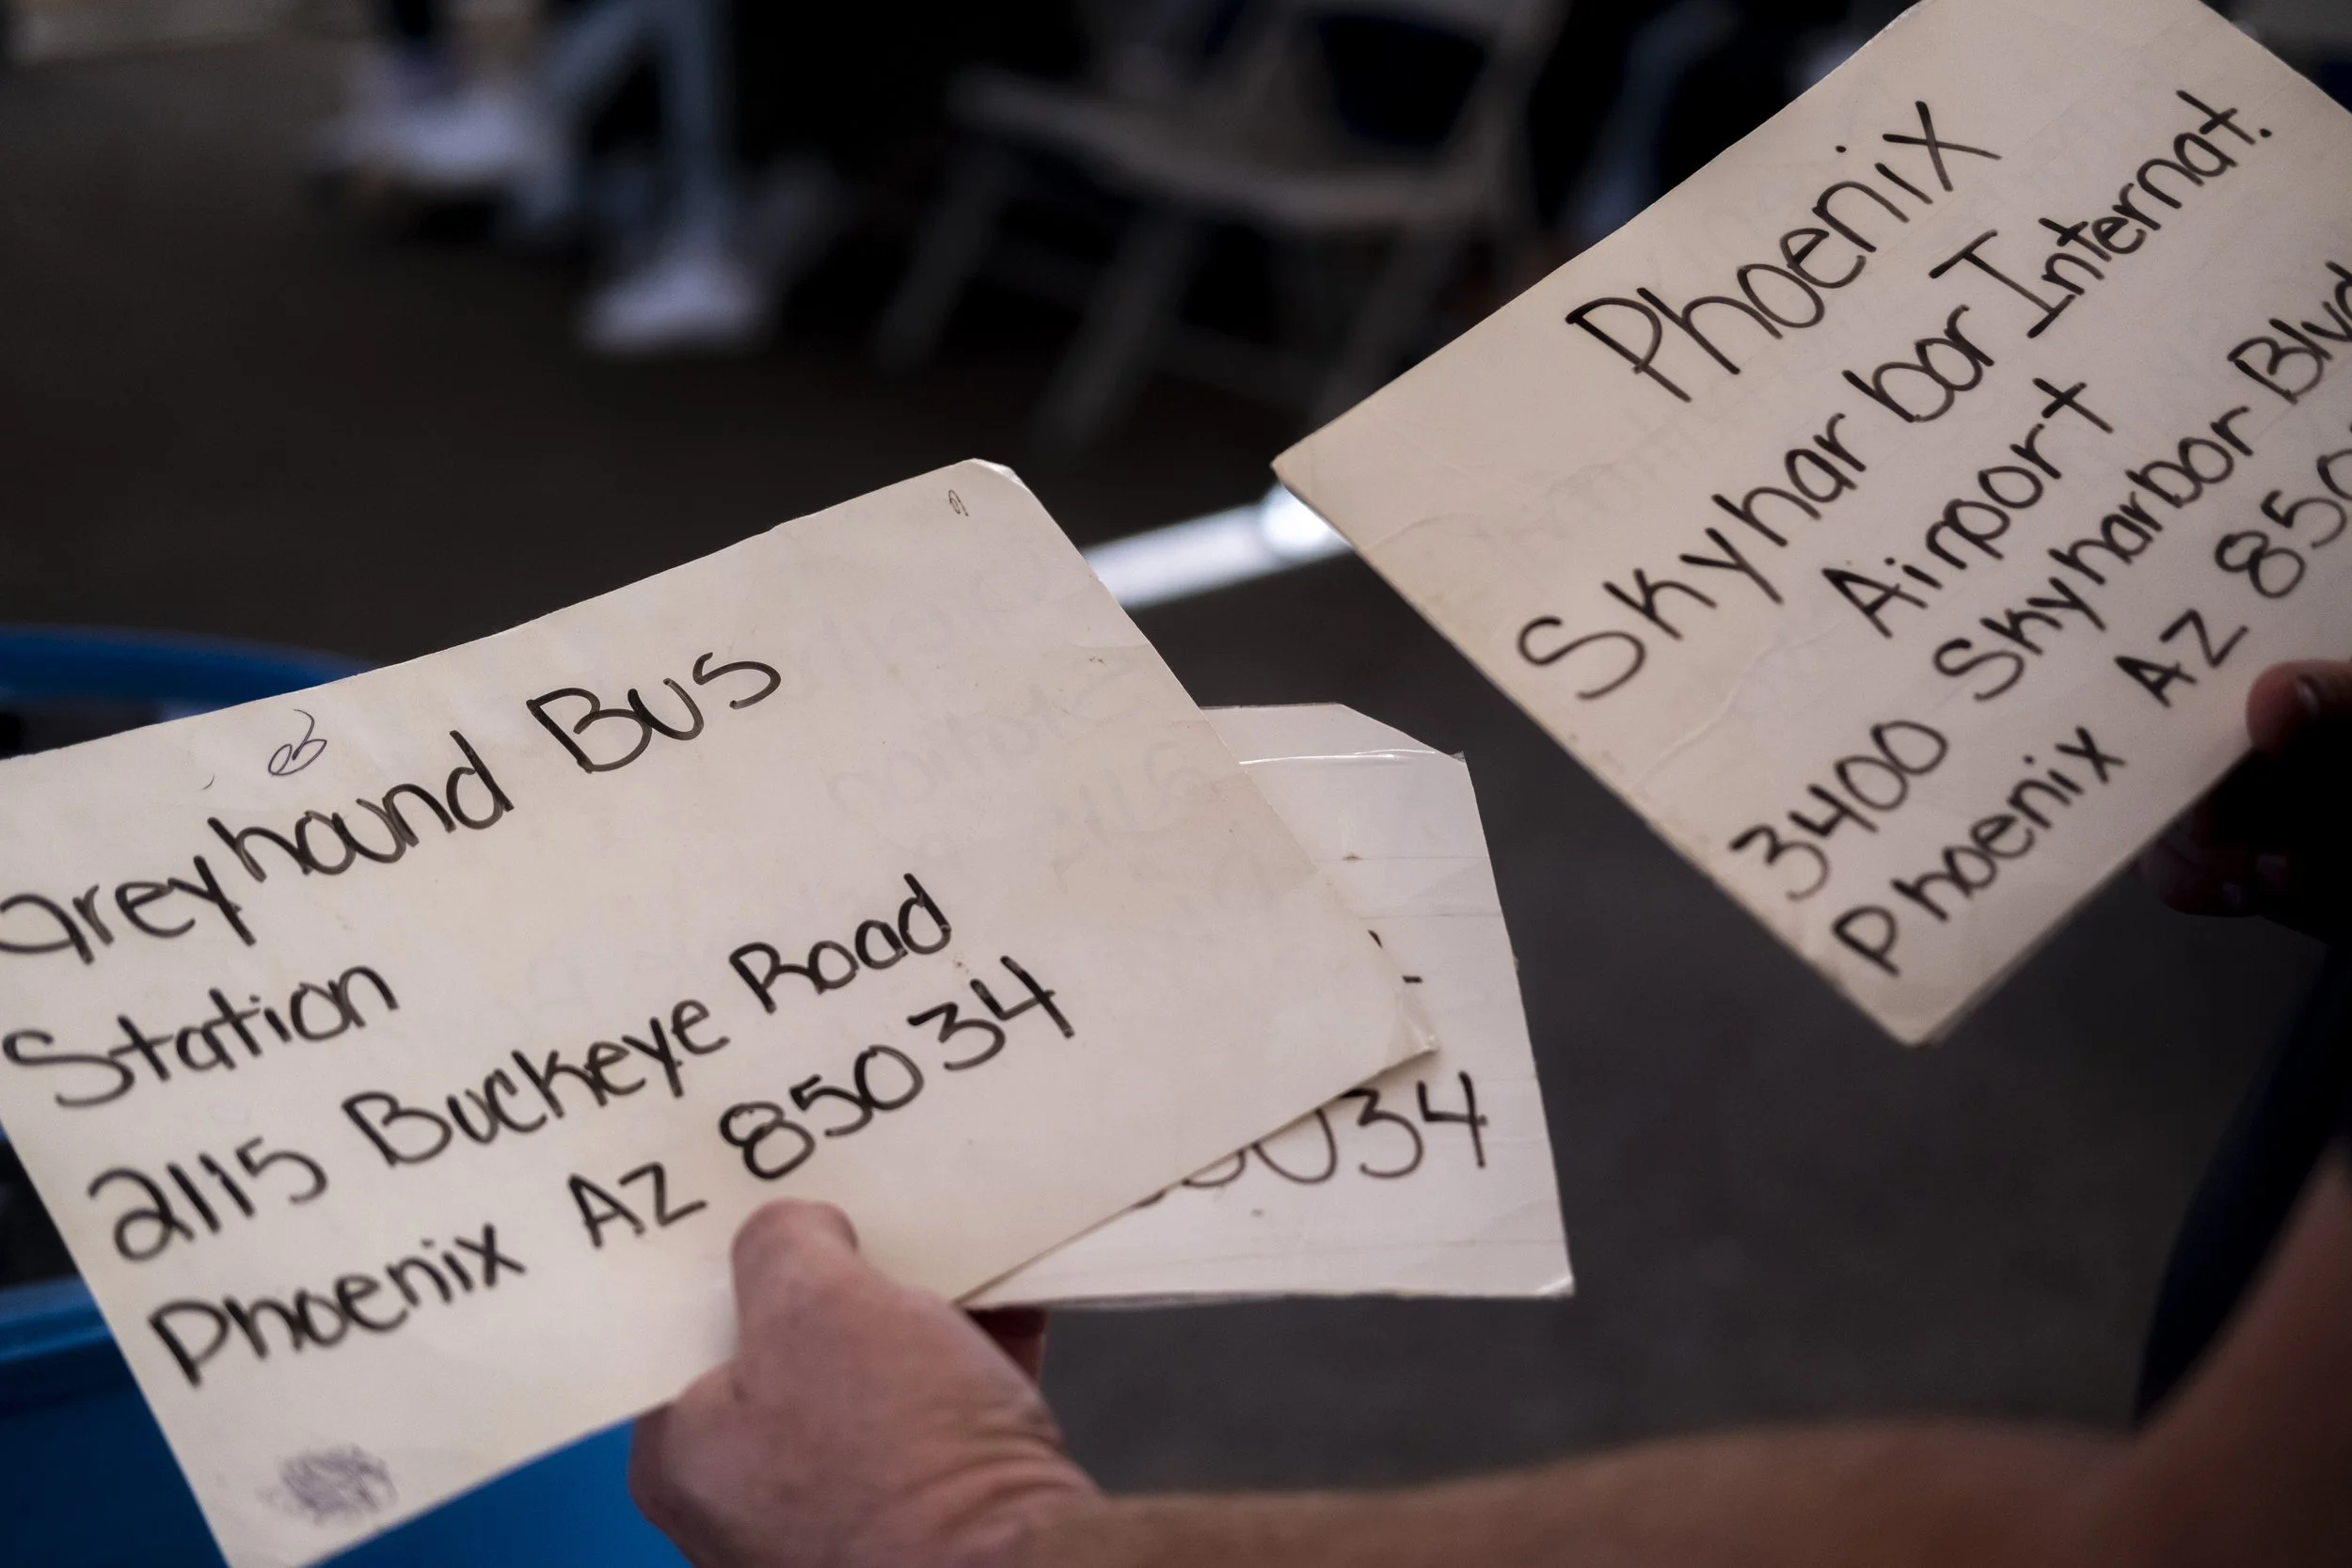 Greyhound Bus
Station
2115 Buckeye Road
Phoenix AZ 85034
034
Phoenix
Skyharbor Internat.
Airport
3400 Skyharbor Blvd
Phoenix AZ 850